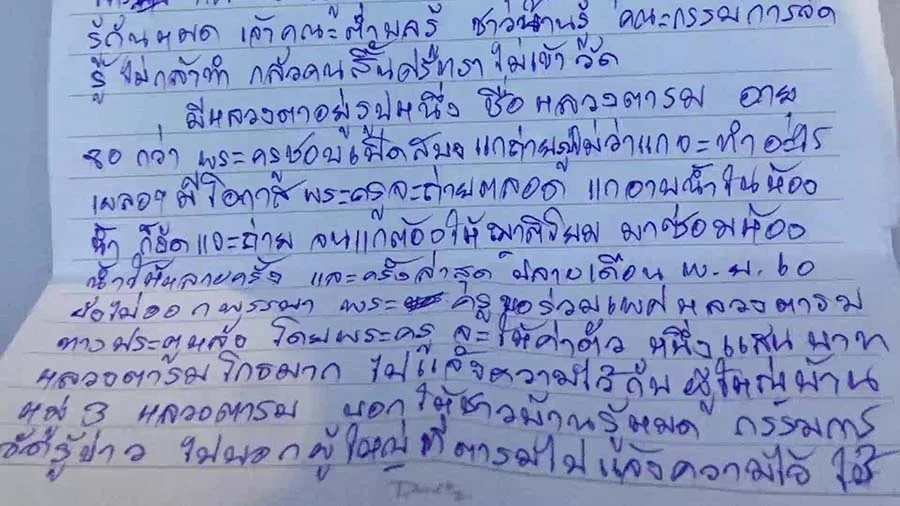 รู้กันหมด เจ้าคณะตำบลรู้ ชาวบ้านรู้ คณะกรรมการวัด
รู้ ไม่กล้าทำ กลัวคนสิ้นศรัทธา ไม่เข้าวัด
มีหลวงตาอยู่รูปหนึ่ง ชื่อ หลวงตารม อายุ
80 กว่า พระครูชอบเปิดสบง แกถ่ายรูปไม่ว่าแกจะทำอะไร
เผลอๆ มีโอกาส พระครูจะถ่ายตลอด แกอาบน้ำในห้อง
น้ำ ก็งัดแงะถ่าย จนแกต้องให้ญาติโยม มาซ่อมห้อง
น้ำให้หลายครั้ง และครั้งล่าสุด ปลายเดือน พ.ย. 60
ยังไม่ออกพรรษา พระ ครูขอร่วมเพศหลวงตารม
ทางประตูหลัง โดยพระครู จะให้ค่าตัว หนึ่งแสนบาท
หลวงตารม โกรธมาก ไปแจ้งความไว้กับ ผู้ใหญ่บ้าน
หมู่ 3 หลวงตารม บอกให้ชาวบ้านรู้หมด กรรมการ
วัดรู้ข่าว ไปบอกผู้ใหญ่ ที่ตารมไปแจ้งความไว้ ให้